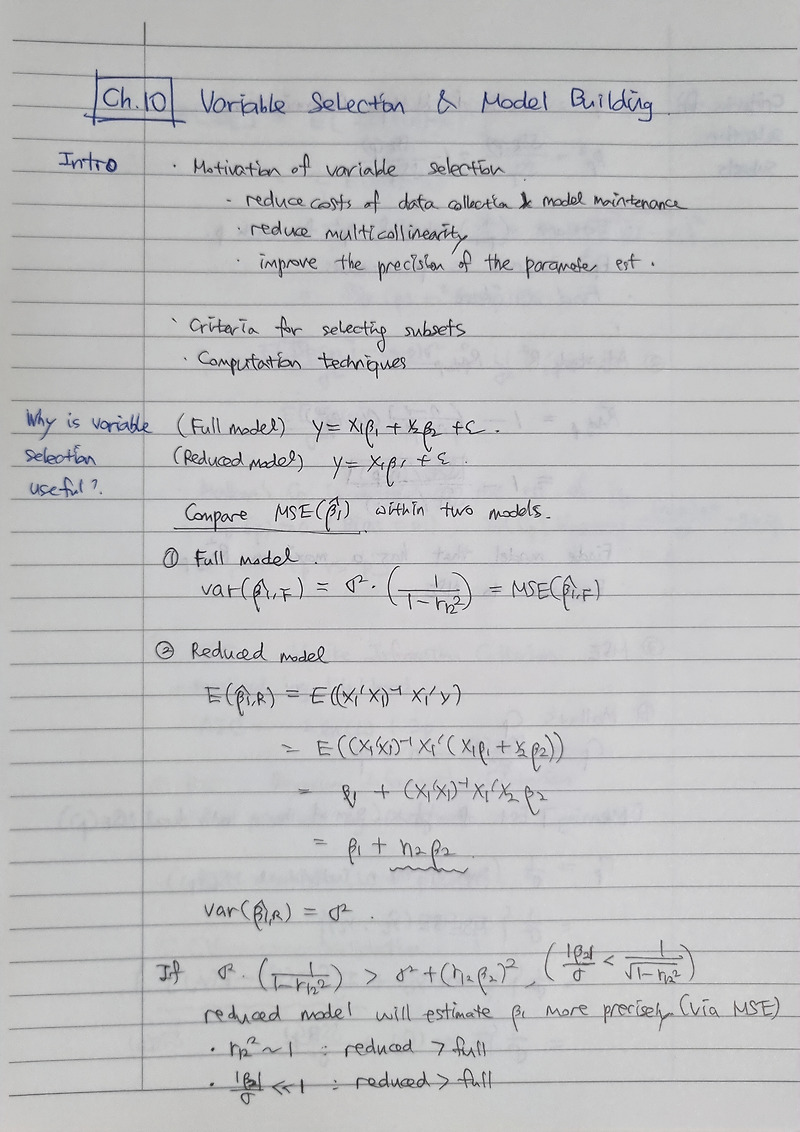 Ch.10 Variable Selection & Model Building
Intro · Motivation of variable selection
· reduce costs of data collection & model maintenance
· reduce multicollinearity
· improve the precision of the parameter est.
· Criteria for selecting subsets
· Computation techniques
Why is variable selection useful?
(Full model) y = X₁β₁ + X₂β₂ + ε.
(Reduced model) y = X₁β₁ + ε.
Compare MSE(β̂₁) within two models.
① Full model.
var(β̂₁,F) = σ² · (1/(1-r₁₂²)) = MSE(β̂₁,F)
② Reduced model
E(β̂₁,R) = E((X₁'X₁)⁻¹ X₁'y)
= E((X₁'X₁)⁻¹ X₁'(X₁β₁ + X₂β₂))
= β₁ + (X₁'X₁)⁻¹X₁'X₂ β₂
= β₁ + r₁₂β₂.
var(β̂₁,R) = σ².
If σ² · (1/(1-r₁₂²)) > σ² + (r₁₂β₂)², (|β₂|/σ < 1/√(1-r₁₂²))
reduced model will estimate β₁ more precisely (via MSE)
· r₁₂² ~ 1 : reduced > full
· |β₂|/σ << 1 : reduced > full